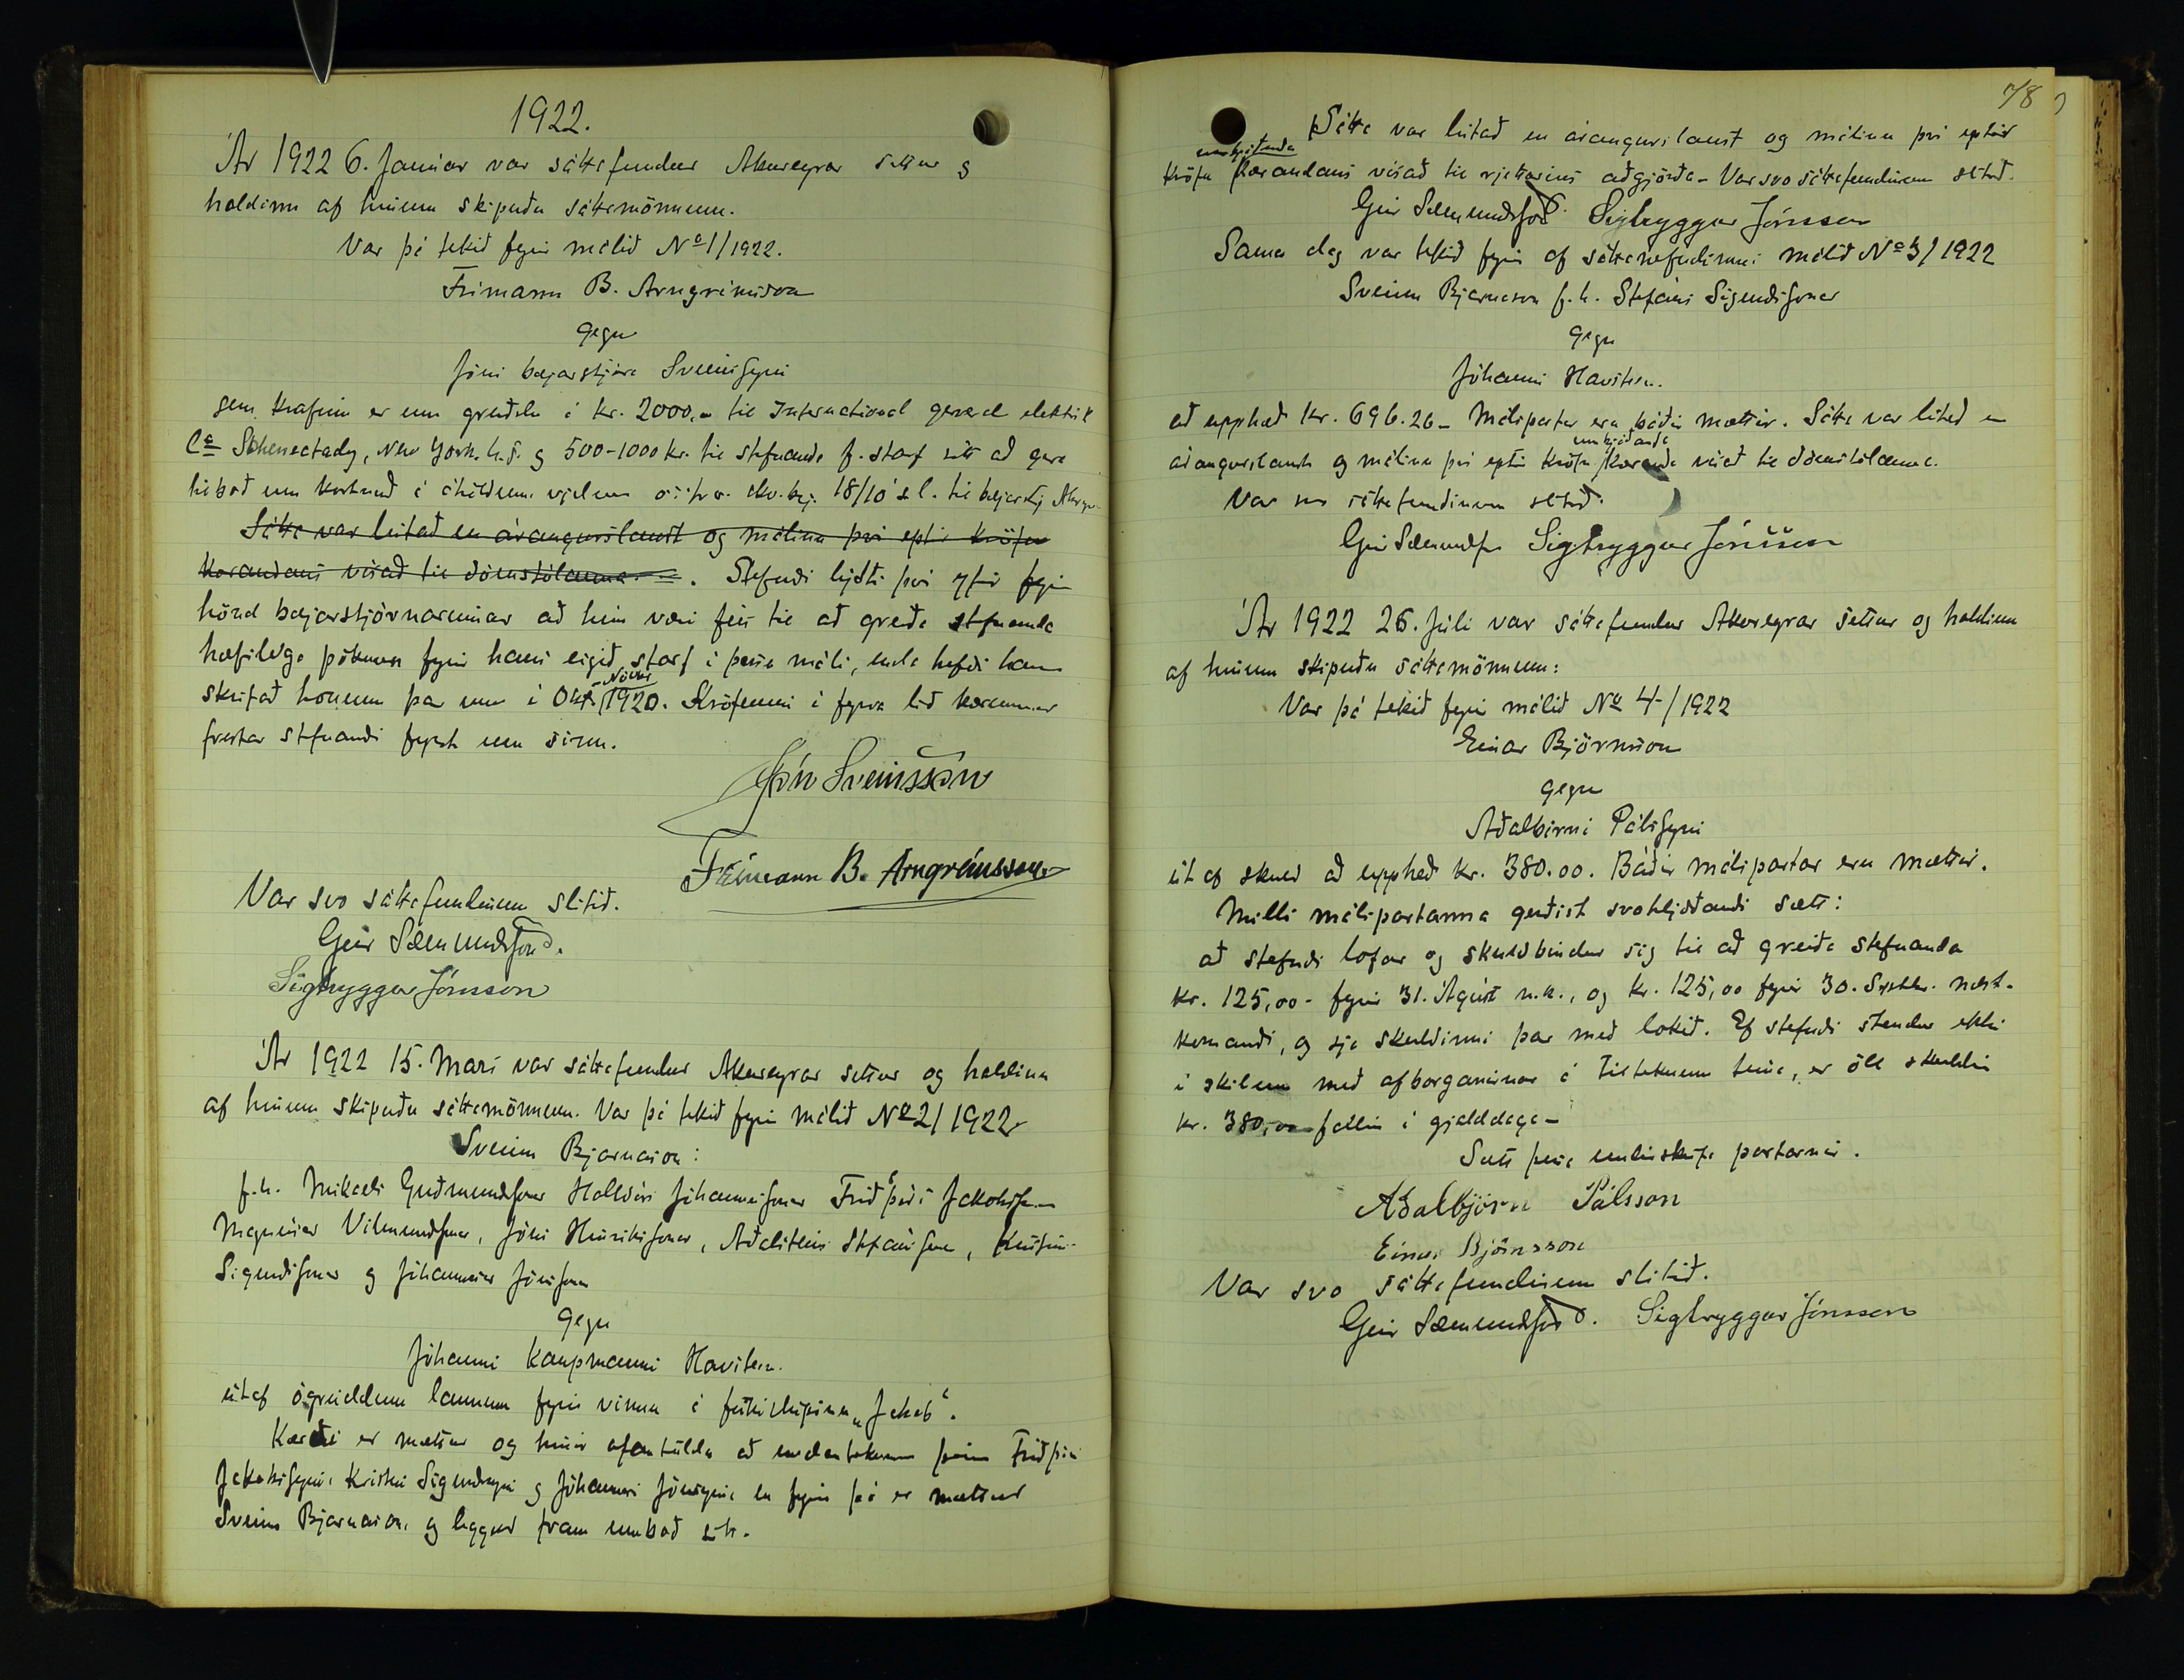 1922.
Ár 1922 6. Janúar var sáttafundur Akureyrar settur g
haldinn af hinum skipuðu sáttamönnum.
Var þá tekið fyrir málið No 1/1922.
Frímann B. Arngrímsson
gegn
Jóni bæjarstjóra Sveinssyni
sem krafinn er um greiðslu á kr. 2000,- til International general elektrik
Co Schenectady, New York. h.f. g 500-1000 kr. til stefnanda f. starf sitt að gera
tilboð um kostnað á áhöldum, vjelum o.s.frv. skv. brj. 18/10 s.l. til bæjarstj
Sátta var leitað en árangurslaust og málinu því eptir kröfu
kærandans vísað til dómstólanna. Stefndi lýsti því yfir fyrir
hönd bæjarstjórnarinnar að hún væri fús til að greiða stefnanda
hæfilega þóknun fyrir hans eigið starf í þessu máli, enda hefði hann
skrifað honum þar um í Okt.-Nóvbr 1920. Kröfunni í fyrra lið kærunnar
frestar stefnandi fyrst um sinn.
Jón Sveinsson
Frímann B. Arngrímsson
Var svo sáttafundinum slitið.
Geir Sæmundsson.
Sigtryggur Jónsson
Ár 1922 15. Mars var sáttafundur Akureyrar settur og haldinn
af hinum skipuðu sáttamönnum. Var þá tekið fyrir málið No 2/1922
Sveinn Bjarnason:
f.h. Mikaels Guðmundssonar Halldórs Jóhannessonar Friðþjófs Jakobssonar
Magnúsar Vilmundssonar, Jóns Hinrikssonar, Aðalsteins Stefánssonar, Kristins
Sigurðssonar g Jóhannesar Jónssonar
gegn
Jóhanni kaupmanni Havsteen.
út af ógreiddum launum fyrir vinnu á fiskiskipinu „Jakob“.
Kærði er mættur og hinir ofantöldu að undanteknum þeim Friðþjófi
Jakobssyni, Kristni Sigurðssyni g Jóhannesi Jónssyni, en fyrir þá er mættur
Sveinn Bjarnason, og leggur fram umboð sitt.
78
Sátta var leitað en árangurslaust og málinu því eptir
umbjóðenda
kröfu kærandans vísað til rjettarins aðgjörða - Var svo sáttafundinum slitið.
Geir Sæmundsson. Sigtryggur Jónsson
Sama dag var tekið fyrir af sáttanefndinni málið No 3/1922
Sveinn Bjarnason f.h. Stefáns Sigurðssonar
gegn
Jóhanni Havsteen.
að upphæð kr. 696.26 - Málspartar eru báðir mættir. Sátta var leitað en
umbjóðanda
árangurslaust og málinu því eptir kröfu kæranda vísað til dómstólanna.
Var svo sáttafundinum slitið.
Geir Sæmundsson Sigtryggur Jónsson
Ár 1922 26. Júli var sáttafundur Akureyrar settur og haldinn
af hinum skipuðu sáttamönnum:
Var þá tekið fyrir málið No 4/1922
Einar Björnsson
gegn
Aðalbirni Pálssyni
út af skuld að upphæð kr. 380.00. Báðir málspartar eru mættir.
Milli málspartanna gerðist svohljóðandi sætt:
að stefndi lofar og skuldbindur sig til að greiða stefnanda
kr. 125,00 - fyrir 31. Ágúst n.k., og kr. 125,00 fyrir 30. Septbr. næst-
komandi, og sje skuldinni þar með lokið. Ef stefndi stendur ekki
í skilum með afborganirnar á tilteknum tíma, er öll skuldin
kr. 380,00 fallin í gjalddaga -
Sætt þessa undirskrifa partarnir.
Aðalbjörn Pálsson
Einar Björnsson
Var svo sáttafundinum slitið.
Geir Sæmundsson. Sigtryggur Jónsson